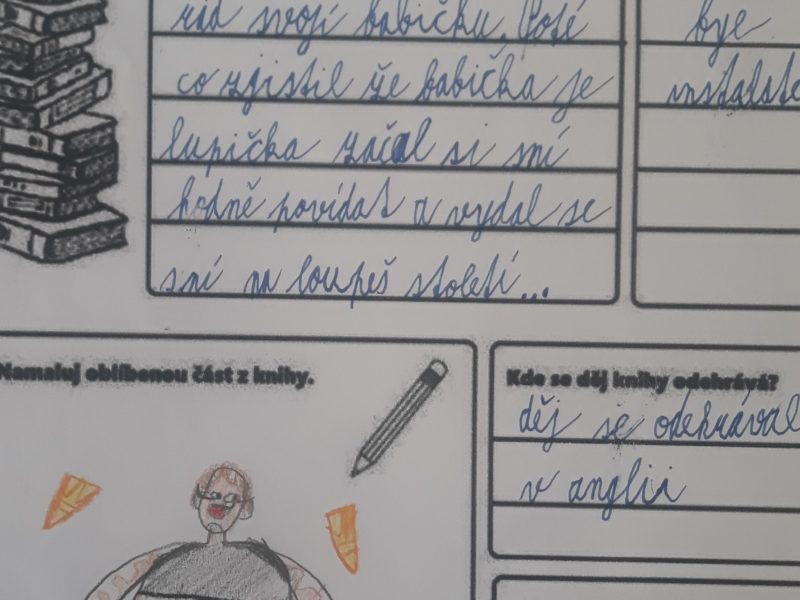 rád svojí babičku. Poté
co zjistil že babička je
lupička začal si sní
hodně povídat a vydal se
sní na loupeš století...
bye
Namaluj oblíbenou část z knihy.
Kde se děj knihy odehrává?
děj se odehrával
v anglii